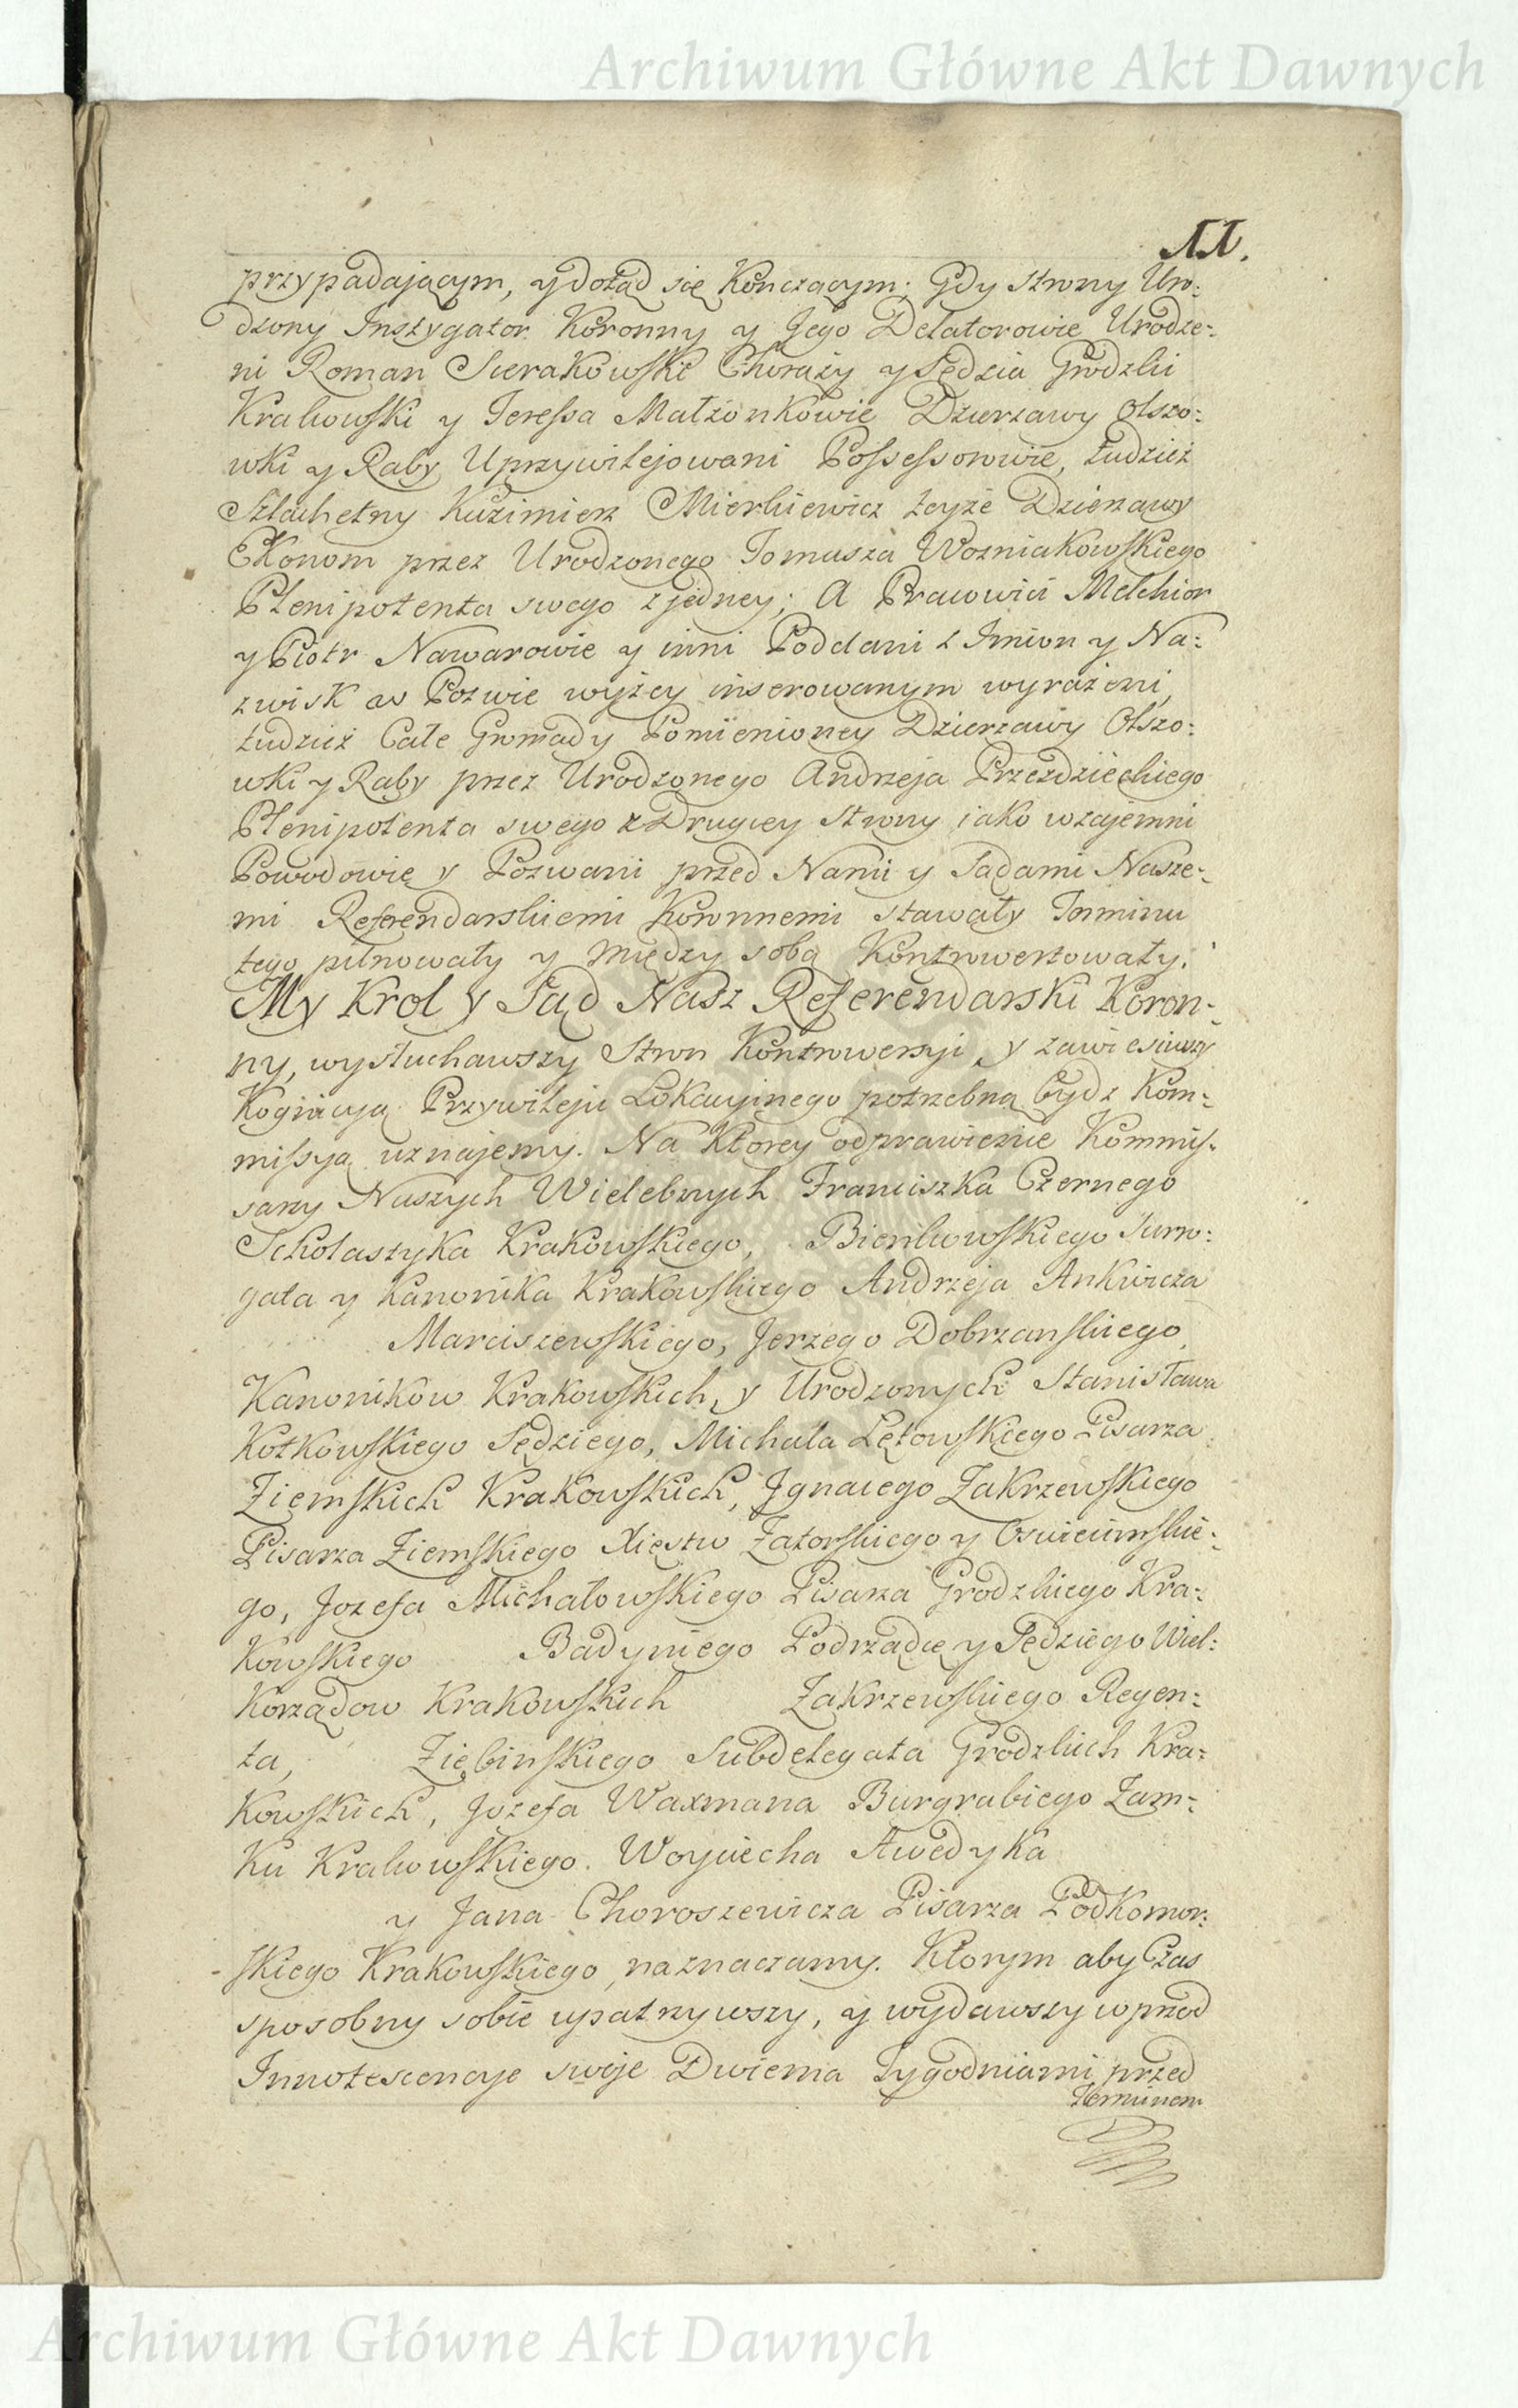 Archiwum Główne Akt Dawnych
11.
przypadającym, y dotąd się Konczącym; Gdy strony Uro:
dzony Instygator Koronny y Jego Delatorowie Urodze:
ni Roman Sierakowski Chorąży y Sędzia Grodzki
Krakowski y Teressa Małżonkowie Dzierzawy Olszo:
wki y Raby Uprzywilejowani Possessorowie, tudzież
Szlachetny Kazimierz Mierkiewicz teyże Dzierzawy
Ekonom przez Urodzonego Tomasza Wozniakowskiego
Plenipotenta swego z jedney; A Pracowici Melchior
y Piotr Nawarowie y inni Poddani z Imion y Na:
zwisk w Pozwie wyżey inserowanym wyrażeni,
tudzież Cale Gromady Pomienioney Dzierzawy Olszo:
wki y Raby przez Urodzonego Andrzeja Przezdzieckiego
Plenipotenta swego z Drugiey strony iako wzajemni
Powodowie y Pozwani przed Nami y Sądami Nasze:
mi Referendarskiemi Koronnemi stawały Terminu
tego pilnowały y między sobą Kontrowertowały.
My Krol y Sąd Nasz Referendarski Koron:
ny, wysłuchawszy Stron Kontrowersyi y zawiesiwszy
Kognicyą Przywileju Lokacyinego potrzebną bydz Kom:
missyą uznajemy. Na Ktorey odprawienie Kommis:
sarzy Naszych Wielebnych Franciszka Czernego
Scholastyka Krakowskiego, Bienkowskiego Surro:
gata y Kanonika Krakowskiego Andrzeja Ankwicza
Marciszewskiego, Jerzego Dobrzanskiego,
Kanonikow Krakowskich, y Urodzonych Stanisława
Kotkowskiego Sędziego, Michała Lętowskiego Pisarza
Ziemskich Krakowskich, Jgnacego Zakrzewskiego
Pisarza Ziemskiego Xięstw Zatorskiego y Oswiecimskie:
go, Jozefa Michałowskiego Pisarza Grodzkiego Kra:
Kowskiego Badyniego Podrządcę y Sędziego Wiel:
Korządow Krakowskich Zakrzewskiego Regen:
ta, Ziębinskiego Subdelegata Grodzkich Kra:
Kowskich, Jozefa Waxmana Burgrabiego Zam:
Ku Krakowskiego. Woyciecha Awedyka
y Jana Choroszewicza Pisarza PodKomor:
skiego Krakowskiego, naznaczamy. Ktorym aby Czas
sposobny sobie upatrzywszy, y wydawszy wprzod
Innotescencye swoje Dwiema Tygodniami przed
Terminem
Archiwum Główne Akt Dawnych